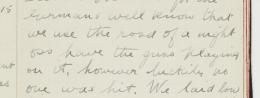 15 for the
Germans well know that
we use the road of a night
oss have the guns playing
on it, however luckily no
one was hit. We laid low